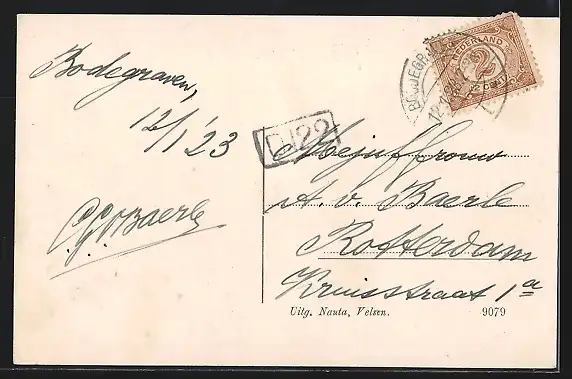 Bodegraven,
12/1 '23
C.G.v.Baerle
NEDERLAND
2
2 CENT
D J 22
Mejuffrouw
A. v. Baerle
Rotterdam
Kruisstraat 1a
Uitg. Nauta, Velsen.
9079